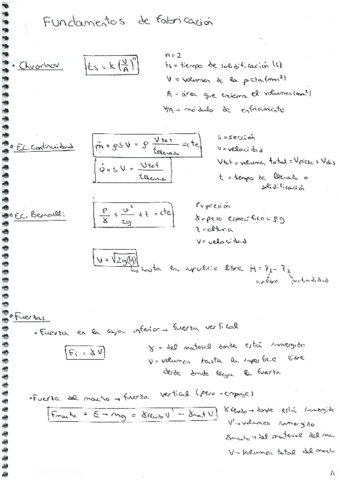 Fundamentos de fabricación
• Chvorinov
ts = k (V/A)^n
n=2
ts = tiempo de solidificación (s)
V = volumen de la pieza (mm³)
A = área que encierra el volumen (mm²)
V/A → módulo de enfriamiento
• Ec. Continuidad
ṁ = ρ s v = ρ Vtot / tllenado = cte
Q = s v = Vtot / tllenado
s = sección
v = velocidad
Vtot = volumen total = Vpieza + Vdis
t = tiempo de llenado o solidificación
• Ec. Bernoulli:
P/γ + v²/2g + z = cte
P = presión
γ = peso específico = ρ g
z = altura
v = velocidad
v = √2g(H)
→ hasta en superficie libre H = z₁ - z₂
profundidad
• Fuerzas
• Fuerza en la caja inferior → fuerza vertical
Fi = γ V
γ = del material donde está sumergido
V = volumen hasta la superficie libre
desde donde llega la fuerza
• Fuerza del macho → fuerza vertical (peso - empuje)
Fmacho = E - mg = γfluido V' - γmat V
γfluido → donde está sumergido
V' → volumen sumergido
γmacho → del material del mac
V → volumen total del mach